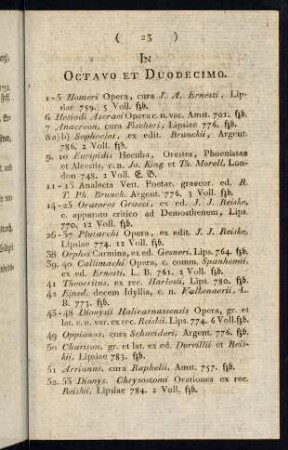 ( 23 )
IN
OCTAVO ET DUODECIMO.
1-5 Homeri Opera, cura J. A. Ernesti, Lip-
siae 759. 5 Voll. fʒb.
6 Hesiodi Ascraei Opera c. n. var. Amst. 701. fʒb.
7 Anacreon, cura Fischeri, Lipsiae 776. fʒb.
8 a) b) Sophocles, ex edit. Brunckii, Argent.
786. 2 Voll. fʒb.
9. 10 Euripidis Hecuba, Orestes, Phoenissae
et Alcestis, c. n. Jo. King et Th. Morell, Lon-
don 748. 2 Voll. E. B.
11-13 Analecta Vett. Poetar. graecor. ed. R.
T. Ph. Brunck. Argent. 776. 3 Voll. fʒb.
14-25 Oratores Graeci, ex ed. J. J. Reiske,
c. apparatu critico ad Demosthenem, Lips.
770. 12 Voll. fʒb.
26-37 Plutarchi Opera, ex edit. J. J. Reiske,
Lipsiae 774. 12 Voll. fʒb.
38 Orphei Carmina, ex ed. Gesneri, Lips. 764. fʒb.
39. 40 Callimachi Opera, c. comm. Spanhemii,
ex ed. Ernesti, L. B. 761. 2 Voll. fʒb.
41 Theocritus, ex rec. Harlesii, Lips. 780. fʒb.
42 Ejusd. decem Idyllia, c. n. Valkenaerii, L.
B. 773. fʒb.
43-48 Dionysii Halicarnassensis Opera, gr. et
lat. c. n. var. ex rec. Reiskii. Lips. 774. 6 Voll. fʒb.
49 Oppianus, cura Schneideri. Argent. 776. fʒb.
50 Chariton, gr. et lat. ex ed. Dorvillii et Reis-
kii, Lipsiae 783. fʒb.
51 Arrianus, cura Raphelii, Amst. 757. fʒb.
52. 53 Dionys. Chrysostomi Orationes ex rec.
Reiskii, Lipsiae 784. 2 Voll. fʒb.